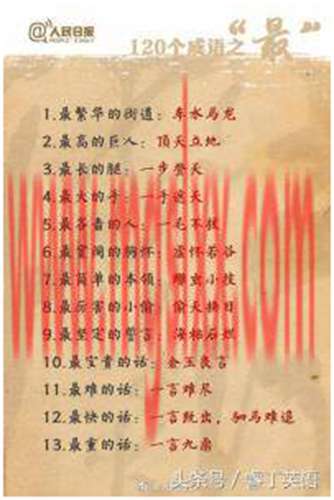 @人民日报
PEOPLE'S DAILY
120个成语之“最”
1.最繁华的街道：车水马龙
2.最高的巨人：顶天立地
3.最长的腿：一步登天
4.最大的手：一手遮天
5.最吝啬的人：一毛不拔
6.最宽阔的胸怀：虚怀若谷
7.最简单的本领：雕虫小技
8.最厉害的小偷：偷天换日
9.最坚定的誓言：海枯石烂
10.最宝贵的话：金玉良言
11.最难的话：一言难尽
12.最快的话：一言既出，驷马难追
13.最重的话：一言九鼎
头条号／睿丁英语